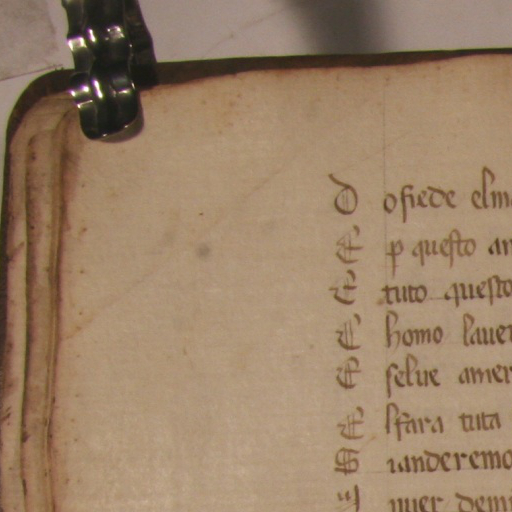 D osiede elm
E p questo an
E tuto questo
E homo lauer
E selue amer
E lsara tuta
S ianderemo